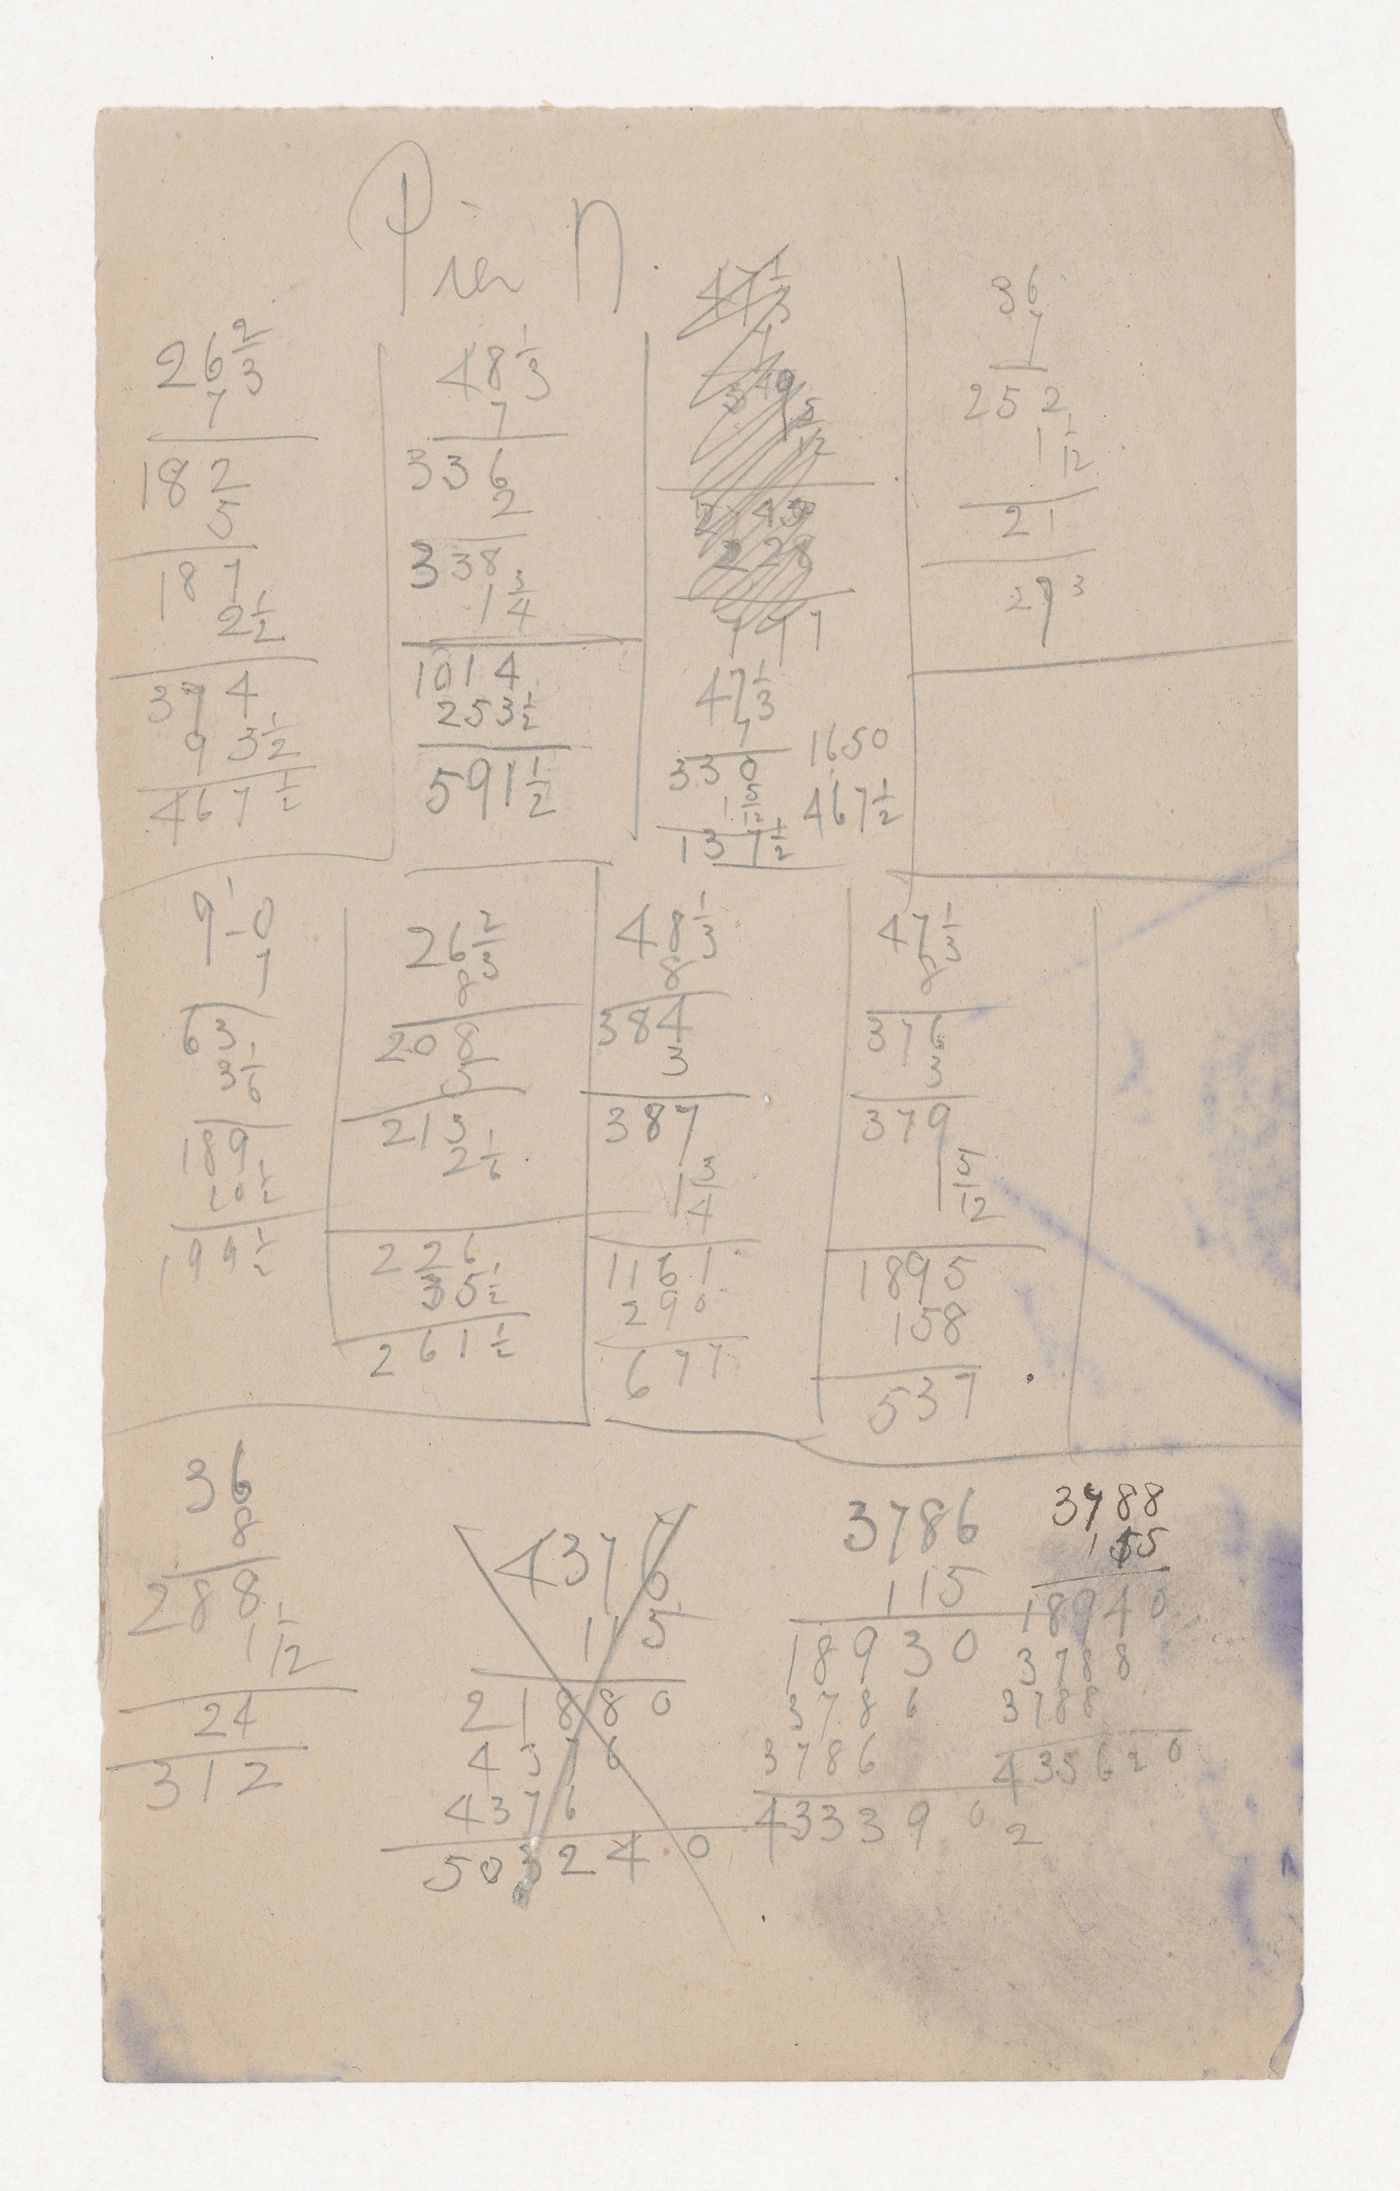 26 2/3
7
182
5
187
2 1/2
374
93 1/2
467 1/2
48 1/3
7
336
2
338
1 3/4
1014
253 1/2
591 1/2
47 1/3
7
330
1 5/12
137 1/2
1650
467 1/2
36
7
252
1 1/12
21
273
7
63
3 1/6
189
10 1/2
199 1/2
26 2/3
8
208
5
213
2 1/6
226
35 1/2
261 1/2
48 1/3
8
384
3
387
1 3/4
1161
290
677
47 1/3
8
376
3
379
1 5/12
1895
158
537
36
8
288
1 1/12
24
312
4376
115
21880
4376
4376
503240
3786
115
18930
3786
3786
433390
3788
115
18940
3788
3788
435620
2